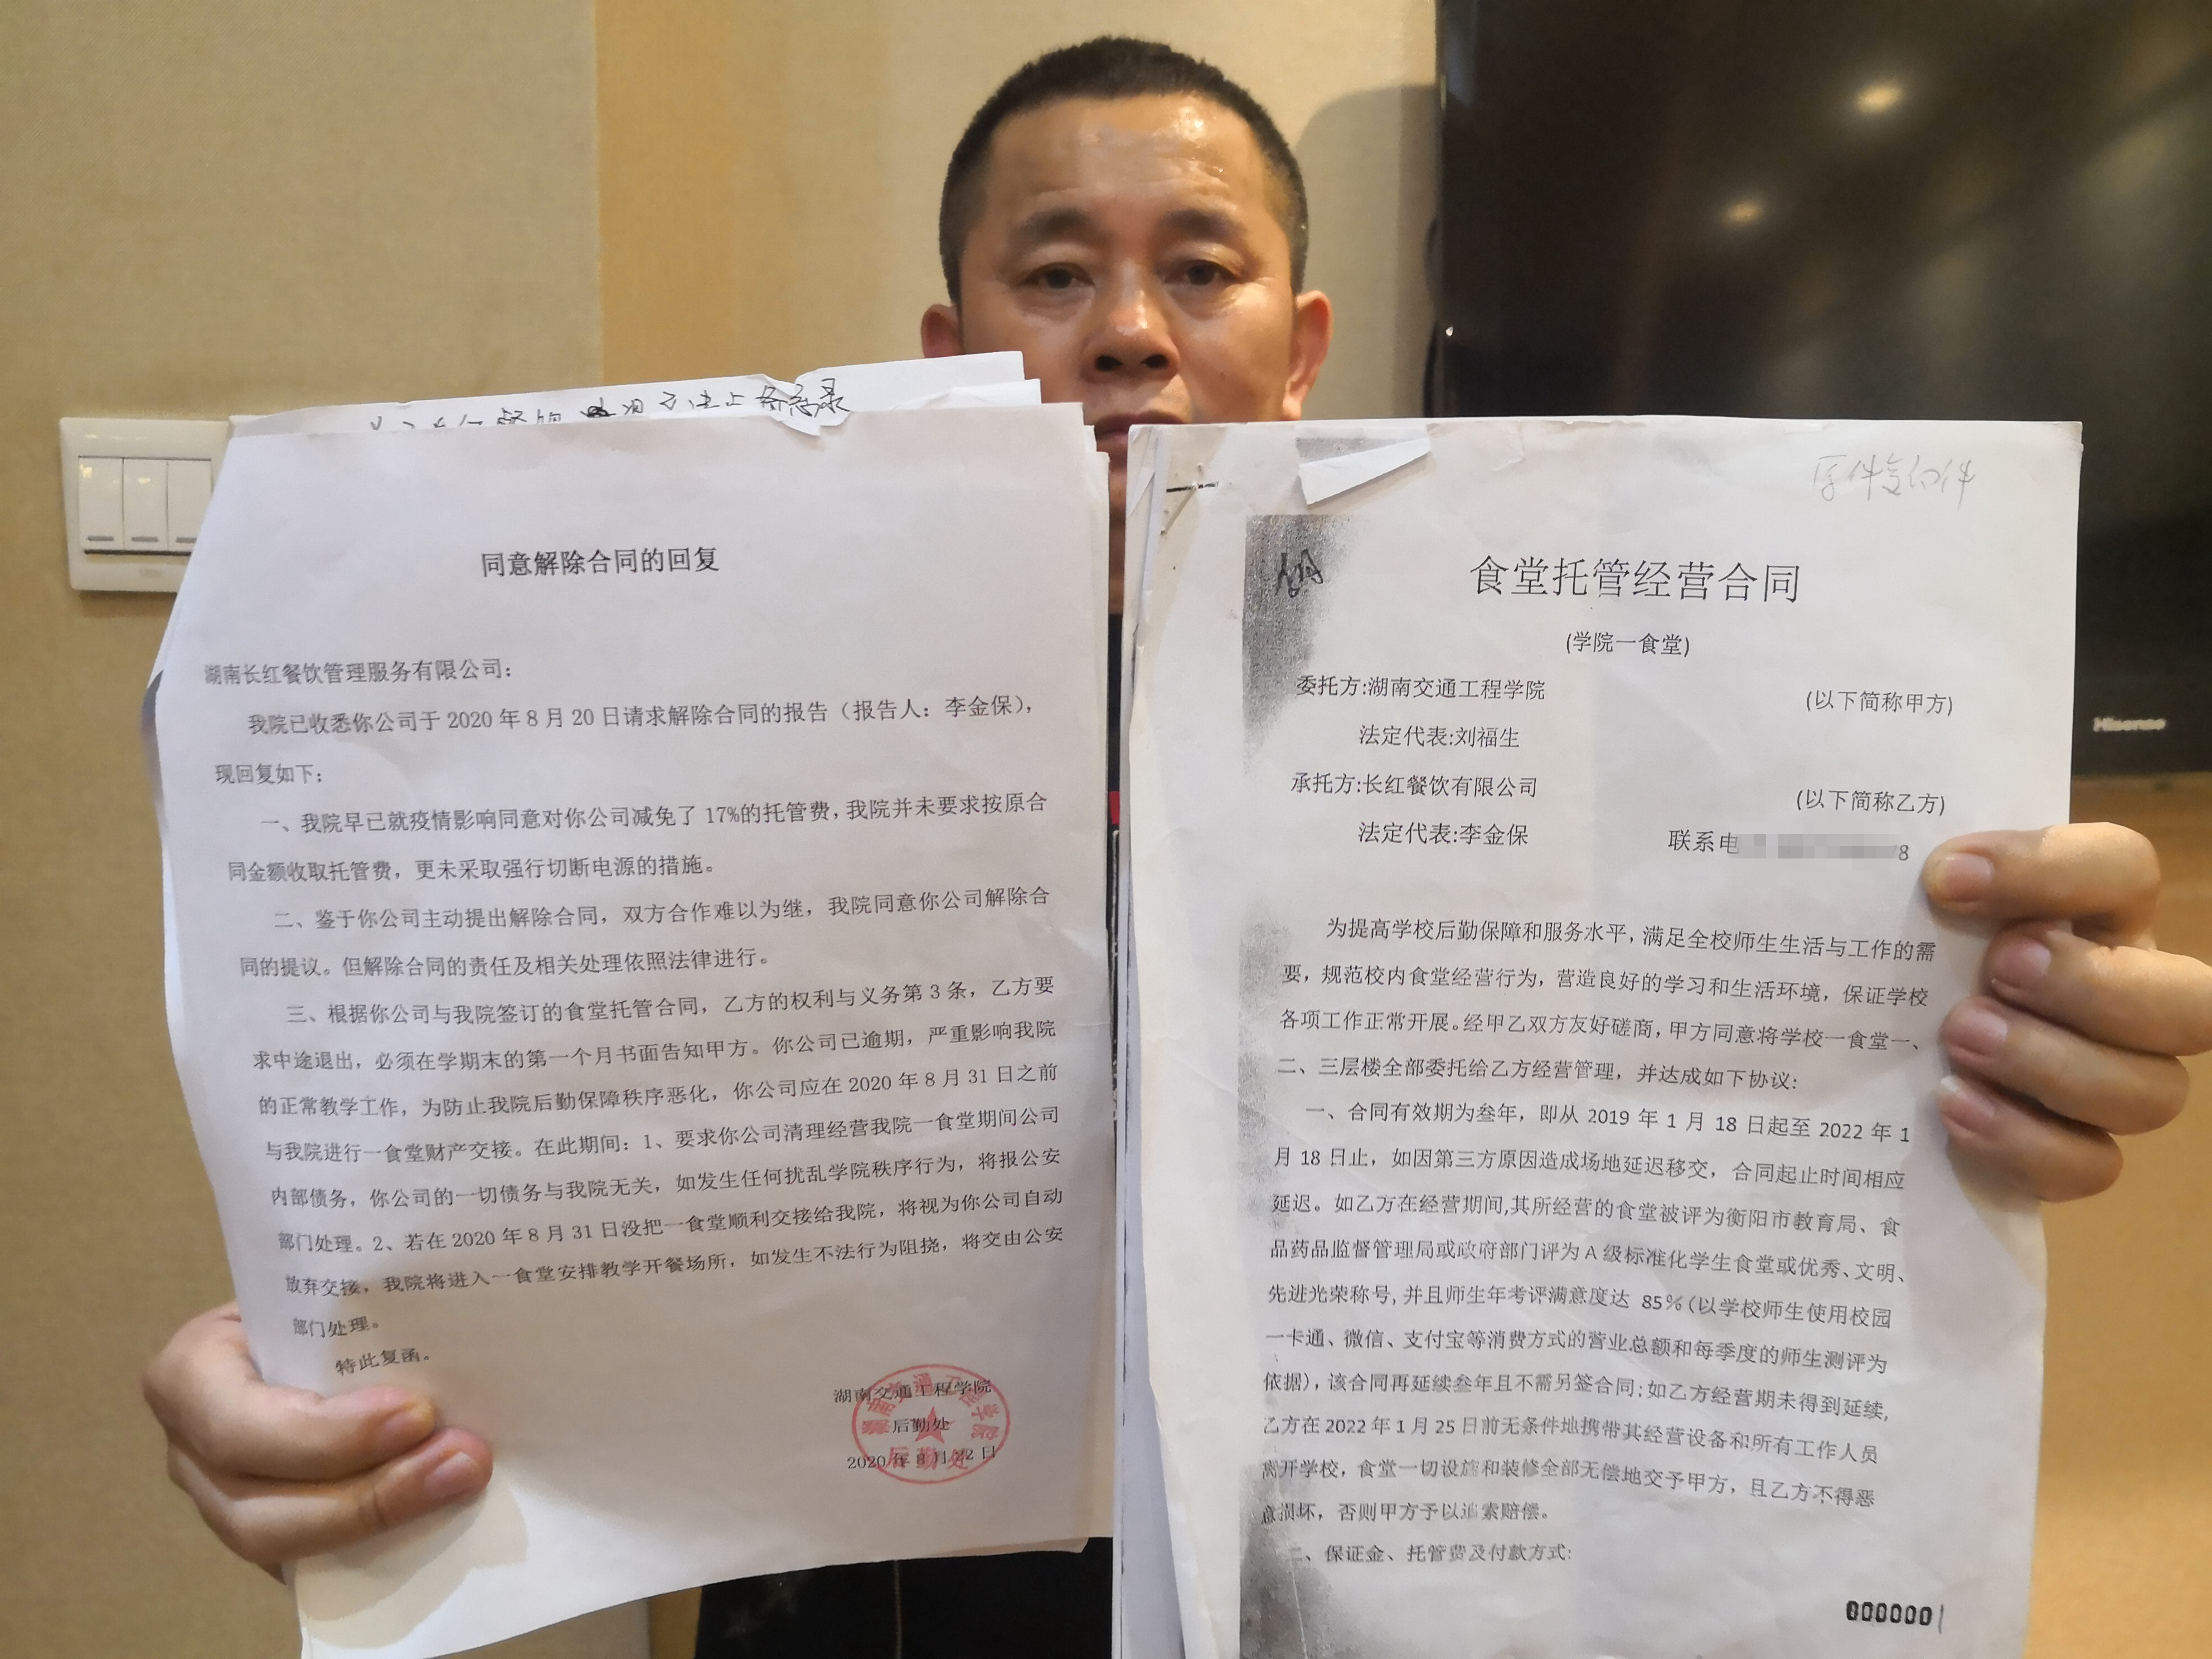 备忘录
同意解除合同的回复
湖南长红餐饮管理服务有限公司：
我院已收悉你公司于 2020 年 8 月 20 日请求解除合同的报告（报告人：李金保），
现回复如下：
一、我院早已就疫情影响同意对你公司减免了 17%的托管费，我院并未要求按原合
同金额收取托管费，更未采取强行切断电源的措施。
二、鉴于你公司主动提出解除合同，双方合作难以为继，我院同意你公司解除合
同的提议。但解除合同的责任及相关处理依照法律进行。
三、根据你公司与我院签订的食堂托管合同，乙方的权利与义务第 3 条，乙方要
求中途退出，必须在学期末的第一个月书面告知甲方。你公司已逾期，严重影响我院
的正常教学工作，为防止我院后勤保障秩序恶化，你公司应在 2020 年 8 月 31 日之前
与我院进行一食堂财产交接。在此期间：1、要求你公司清理经营我院一食堂期间公司
内部债务，你公司的一切债务与我院无关，如发生任何扰乱学院秩序行为，将报公安
部门处理。2、若在 2020 年 8 月 31 日没把一食堂顺利交接给我院，将视为你公司自动
放弃交接，我院将进入一食堂安排教学开餐场所，如发生不法行为阻挠，将交由公安
部门处理。
特此复函。
湖南交通工程学院
后勤处
2020 年 8 月 22 日
湖南交通工程学院
后勤处
原件复印件
食堂托管经营合同
(学院一食堂)
委托方:湖南交通工程学院 (以下简称甲方)
法定代表:刘福生
承托方:长红餐饮有限公司 (以下简称乙方)
法定代表:李金保 联系电 8
为提高学校后勤保障和服务水平，满足全校师生生活与工作的需
要，规范校内食堂经营行为，营造良好的学习和生活环境，保证学校
各项工作正常开展。经甲乙双方友好磋商，甲方同意将学校一食堂一、
二、三层楼全部委托给乙方经营管理，并达成如下协议:
一、合同有效期为叁年，即从 2019 年 1 月 18 日起至 2022 年 1
月 18 日止，如因第三方原因造成场地延迟移交，合同起止时间相应
延迟。如乙方在经营期间,其所经营的食堂被评为衡阳市教育局、食
品药品监督管理局或政府部门评为 A 级标准化学生食堂或优秀、文明、
先进光荣称号,并且师生年考评满意度达 85%(以学校师生使用校园
一卡通、微信、支付宝等消费方式的营业总额和每季度的师生测评为
依据)，该合同再延续叁年且不需另签合同;如乙方经营期未得到延续,
乙方在 2022 年 1 月 25 日前无条件地携带其经营设备和所有工作人员
离开学校，食堂一切设施和装修全部无偿地交予甲方，且乙方不得恶
意损坏，否则甲方予以追索赔偿。
二、保证金、托管费及付款方式:
0000001
Hisense